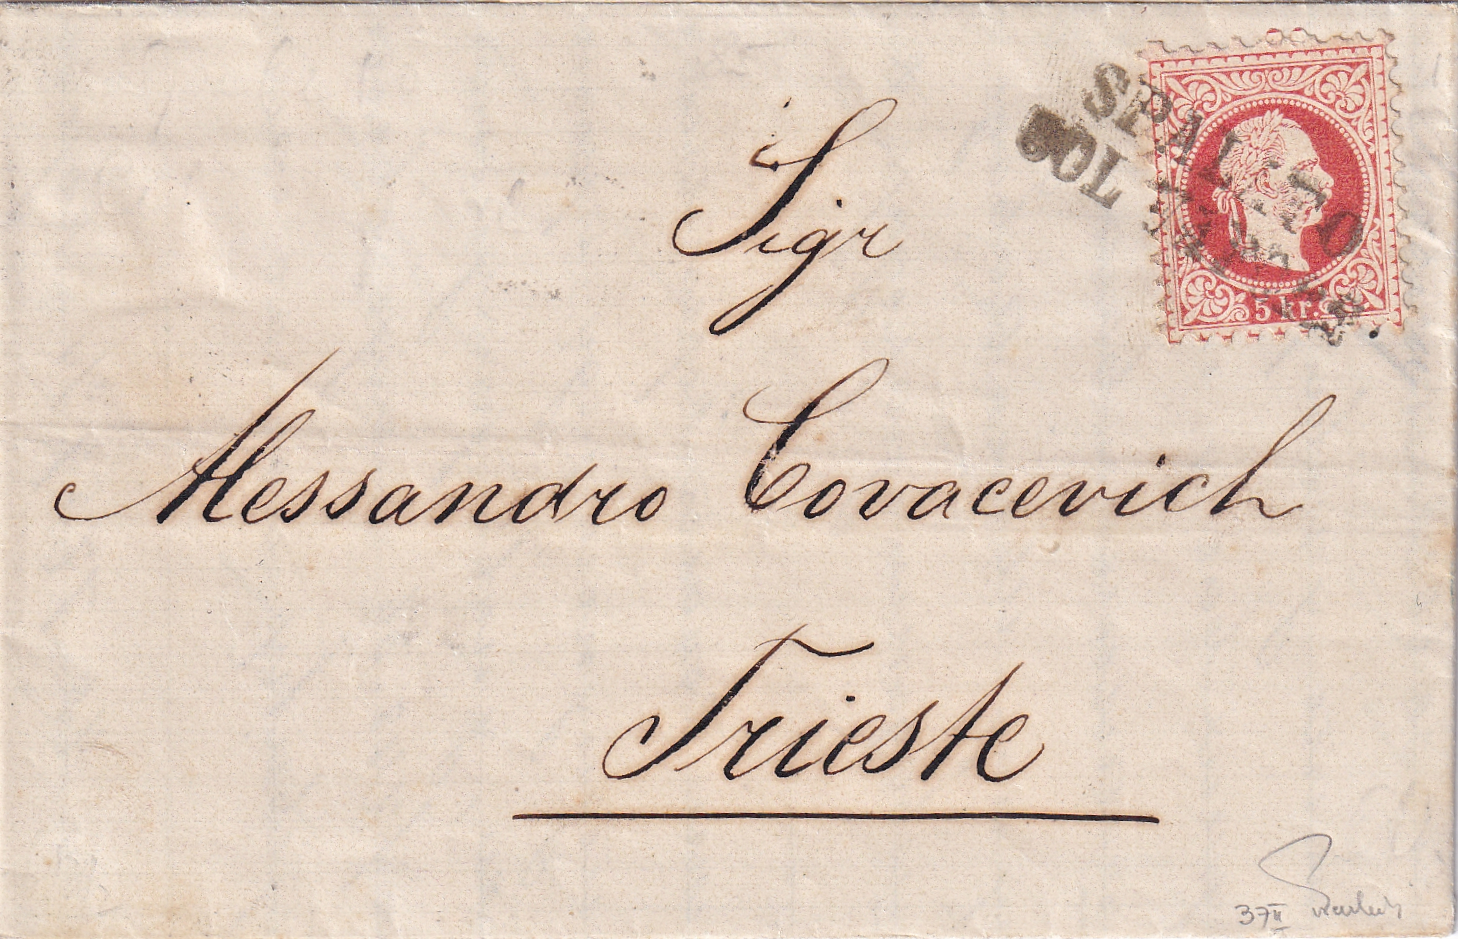 SPALATO
COL VAPORE
5 kr.
Sigr
Alessandro Covacevich
Trieste
37 II